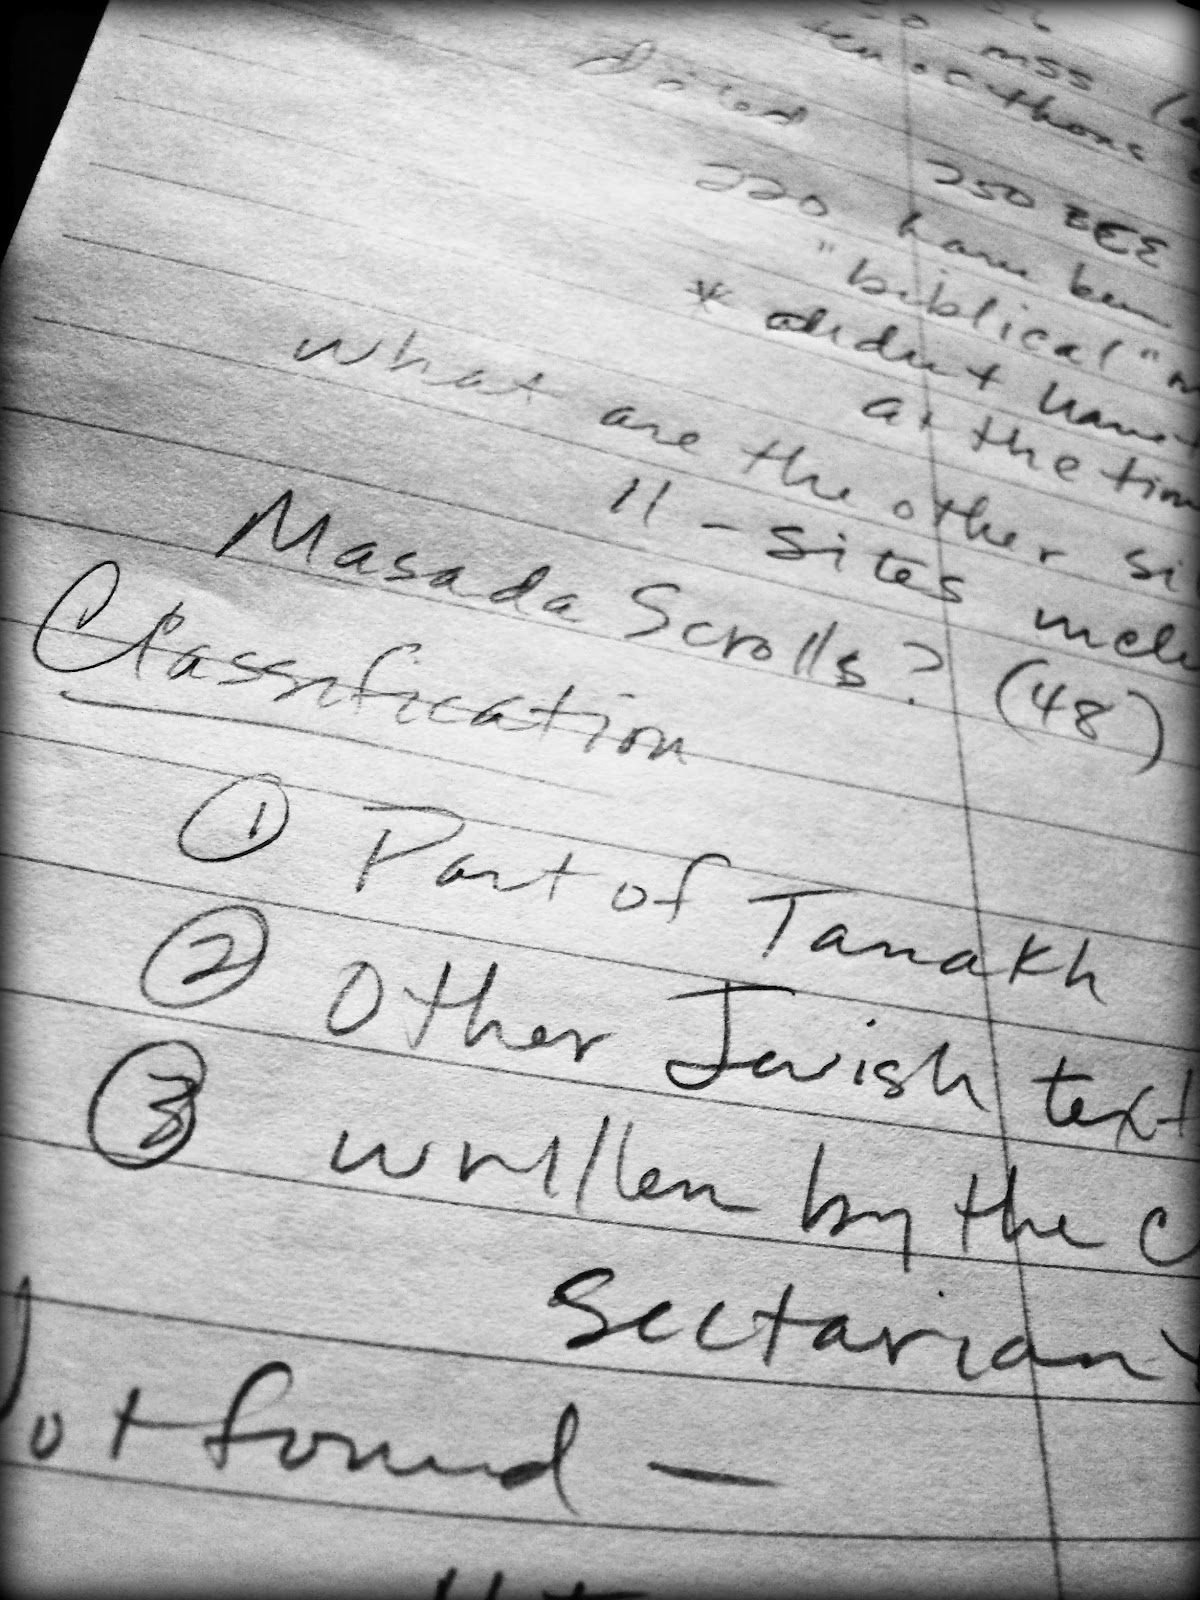 mss
Dated 250 BCE
220 have been
"biblical"
* didn't have
at the tim
what are the other si
11 - sites inclu
Masada Scrolls? (48)
Classification
① Part of Tanakh
② Other Jewish text
③ written by the C
Sectarian
Not found —